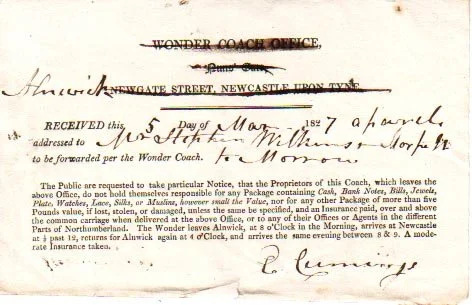 WONDER COACH OFFICE,
Nuns' Gate
Alnwick NEWGATE STREET, NEWCASTLE UPON TYNE
RECEIVED this 5 Day of Mar 1827 a parcel
addressed to Mr Stephen Wilkinson
to be forwarded per the Wonder Coach. to Morrow
The Public are requested to take particular Notice, that the Proprietors of this Coach, which leaves the
above Office, do not hold themselves responsible for any Package containing Cash, Bank Notes, Bills, Jewels,
Plate, Watches, Lace, Silks, or Muslins, however small the Value, nor for any other Package of more than five
Pounds value, if lost, stolen, or damaged, unless the same be specified, and an Insurance paid, over and above
the common carriage when delivered at the above Office, or to any of their Offices or Agents in the different
Parts of Northumberland. The Wonder leaves Alnwick, at 8 o'Clock in the Morning, arrives at Newcastle
at ½ past 12, returns for Alnwick again at 4 o'Clock, and arrives the same evening between 8 & 9. A mode-
rate Insurance taken.
Cummings